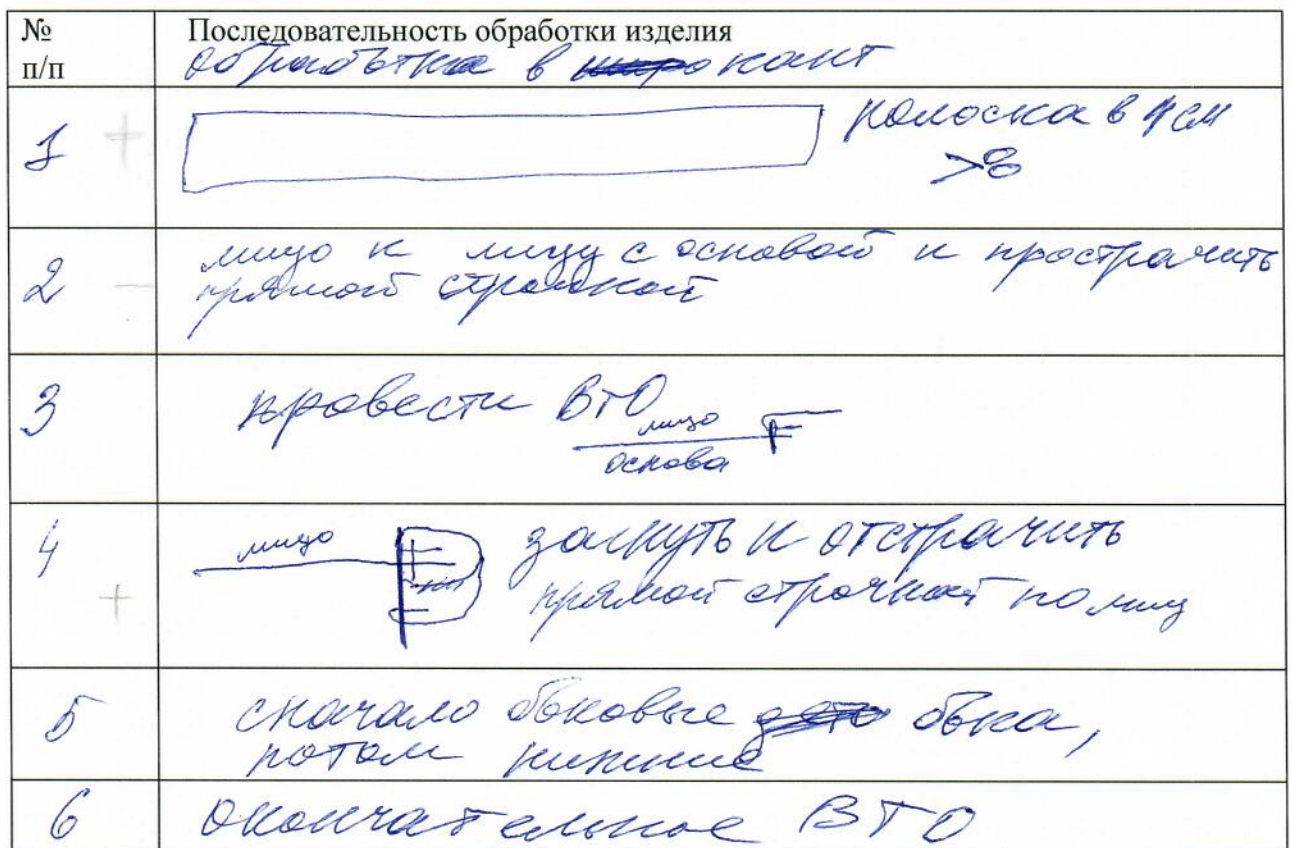 № Последовательность обработки изделия
п/п обработка в кант
1 + полоска в 4 см
>8
2 - лицо к лицу с основой и прострачить
прямой строчкой
3 провести ВТО
лицо
основа
4 лицо загнуть и отстрачить
+ прямой строчкой по лиц
5 сначало боковые бока,
потом нижние
6 окончательное ВТО